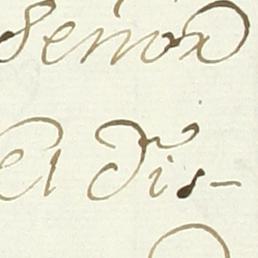 Señor
el dis-